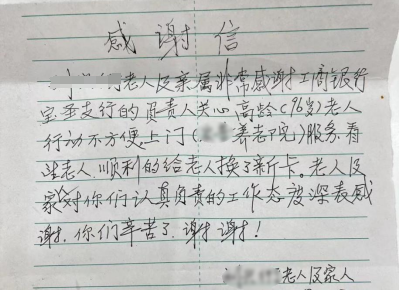 感谢信
老人及亲属非常感谢工商银行
宝垂支行的负责人关心高龄(96岁)老人
行动不方便,上门(养老院)服务,看
望老人,顺利的给老人换了新卡。老人及
家对你们认真负责的工作态度深表感
谢,你们辛苦了,谢谢!
老人及家人